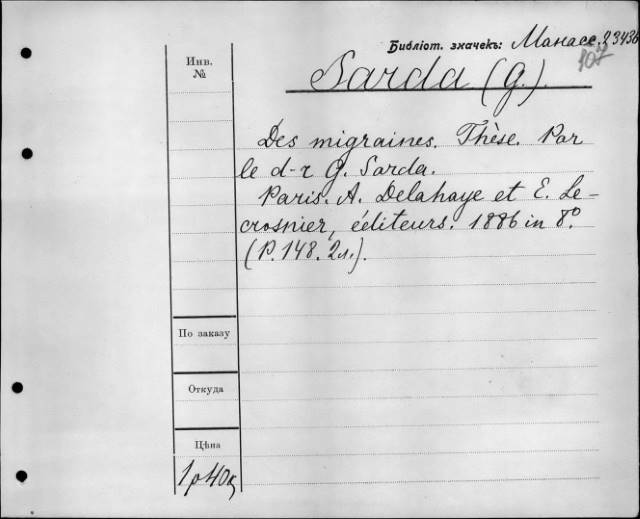 Библіот. значекъ: Манасс. 23436
107
Инв.
№
Sarda (G.).
Des migraines. Thèse. Par
le d-r G. Sarda.
Paris. A. Delahaye et E. Le-
crosnier, éditeurs. 1886 in 8º.
(P. 148. 2 л.).
По заказу
Откуда
Цѣна
1 р 40 к